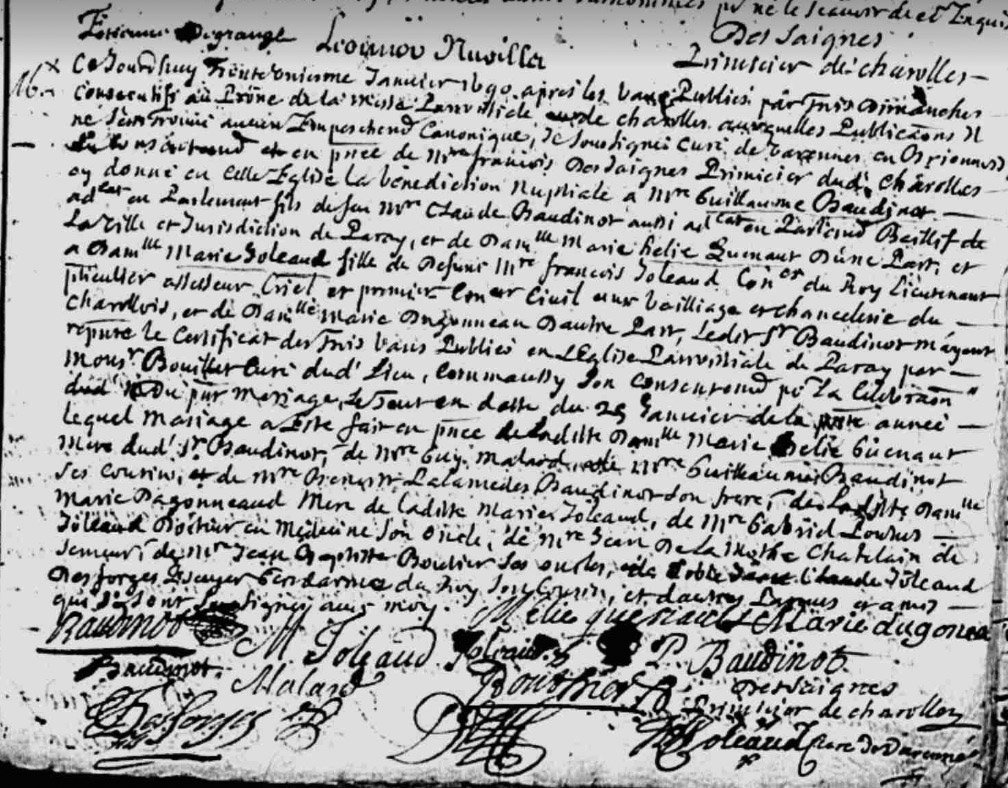 po ne le scavoir de ce Enquis
Estienne Degrange Leonnor Nuville DesSaignes
Primicier de charolles
16.
Ce Jourdhuy Trente uniesme Janvier 1690. apres les bans Publiés par Trois Dimanches
Consecutifs au Prône de la messe Parroissiale de charolles auxquelles Publicaons Il
ne sest trouvé aucun Empeschemt Canonique, Je soubsigné Curé de Varennes en Brionnois
du consentemt et en pnce de Mre francois DesSaignes Primicier dudt Charolles
ay donné en celle Eglise la benediction Nuptiale a Mre Guillaume Baudinot
adcat en Parlement fils de feu Mre Claude Baudinot aussi adcat en Parlemt Baillif de
la Ville et Jurisdiction de Paray, et de Damlle Marie helie Quenaut D'une Part, et
a Damlle Marie Joleaud fille de Defunt Mre francois Joleaud Conor du Roy Lieutenant
pticullier assesseur Criel et premier Coner Civil aux bailliage et chancelerie du
Charollois, et de Damlle Marie Dagonneau Dautre Part, Ledit Sr Baudinot m'ayant
reporté le Certificat des Trois bans Publiés en L'Eglise Parroissiale de Paray par
Monsr Bouillet Curé dudt Lieu, Comm'aussy son consentemt po la Celebraon
dudt pnt Mariage, Le Tout en datte du 29 Janvier de la pnte année
Lequel Mariage a Esté fait en pnce de Ladite Damlle Marie helie Guenaut
Mere dudt Sr Baudinot, de Mre Guy Malard, de Mre Guilleaume Baudinot
Ses Cousins, et de Mre Palamedes Baudinot son frere, de Ladite Damlle
Marie Dagonneaud Mere de Ladite Marie Joleaud, de Mre Gabriel
Joleaud Docteur en Medecine son oncle, de Mre Jean De la mothe Chatelain de
Semeur, de Mre Jean Baptiste Boutier ses oncles, de Noble Claude Joleaud
Desforges Escuyer Gendarme du Roy son Cousin, et dautres Parens et amis
qui se sont soussignés avec moy. Melie quenault Marie dagonea
Baudinot M Joleaud Joleaud P. Baudinot
Baudinot. Malard Bouthier DesSaignes
Primicier de charolles
Desforges Joleaud Curé de Varenne